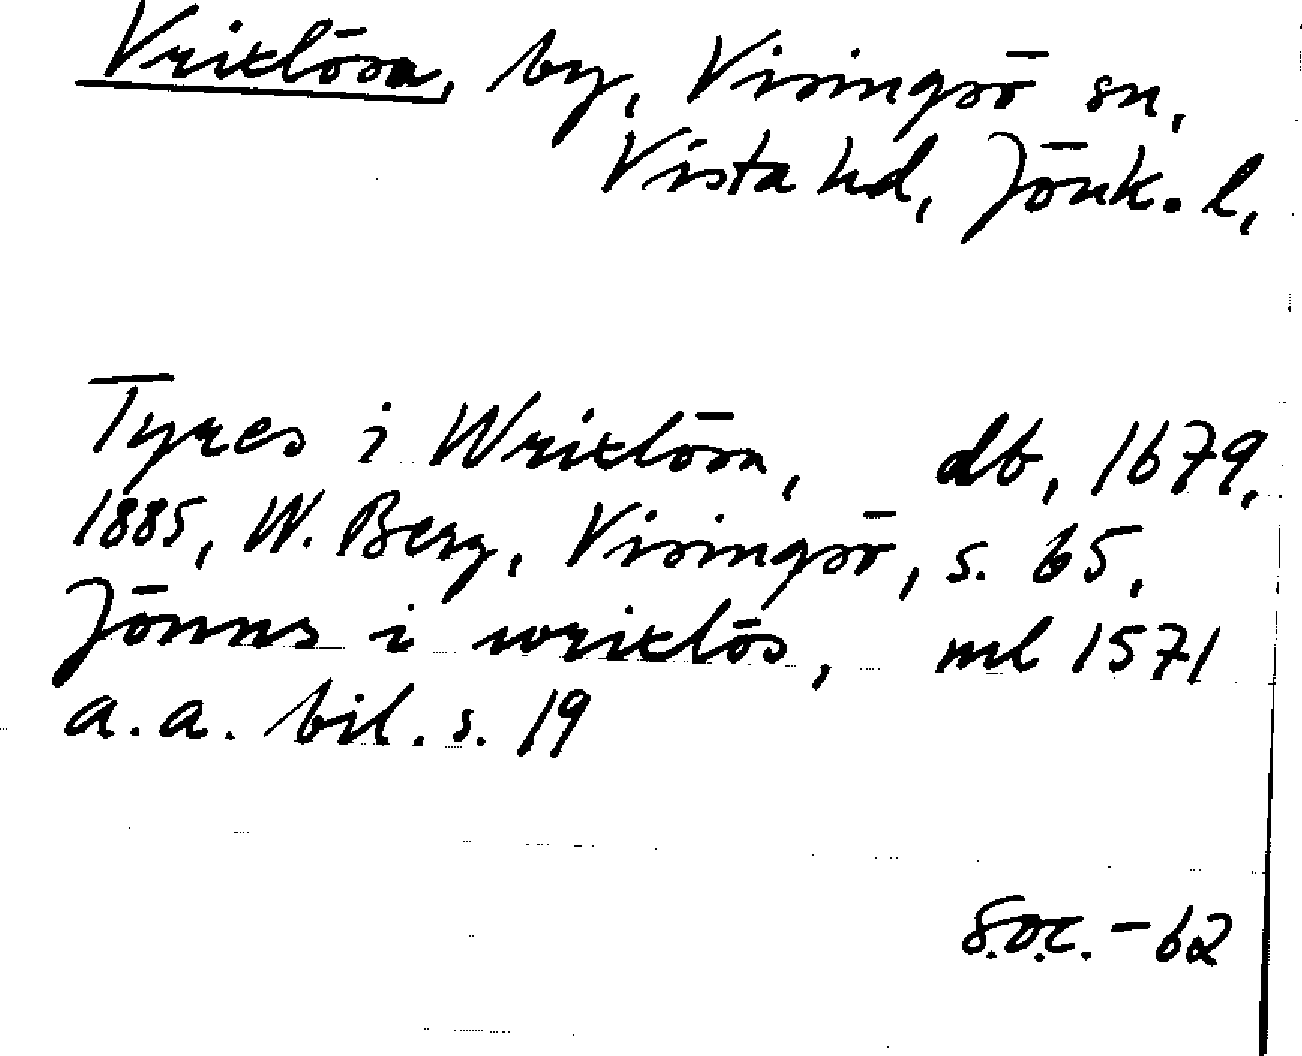 Vrixlösa, by, Visingsö sn,
Vista hd, Jönk. l,
Tyres i Wrixlösa, db, 1679,
1885, W. Berg, Visingsö, s. 65,
Jönns i wrixlös, ml 1571
a.a. bil. s. 19
S.O.C. - 62